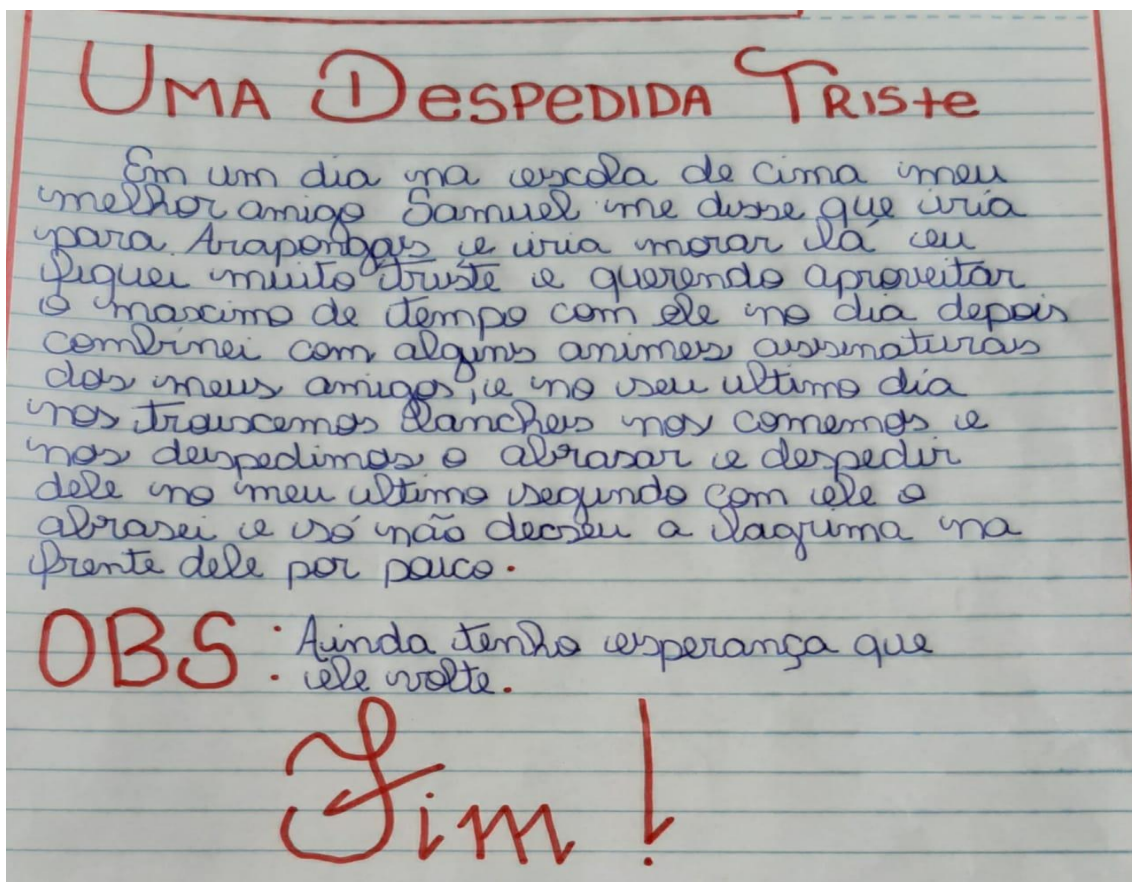 UMA DESPEDIDA TRISTE
Em um dia na escola de cima meu
melhor amigo Samuel me disse que iria
para Arapongas e iria morar lá eu
fiquei muito triste e querendo aproveitar
o maximo de tempo com ele no dia depois
combinei com alguns animes assinaturas
dos meus amigos, e no seu ultimo dia
nos trouscemos lanches nos comemos e
nos despedimos o abrasar e despedir
dele no meu ultimo segundo com ele o
abrasei e só não decseu a lagrima na
frente dele por pouco.
OBS: Ainda tenho esperança que
ele volte.
Fim!